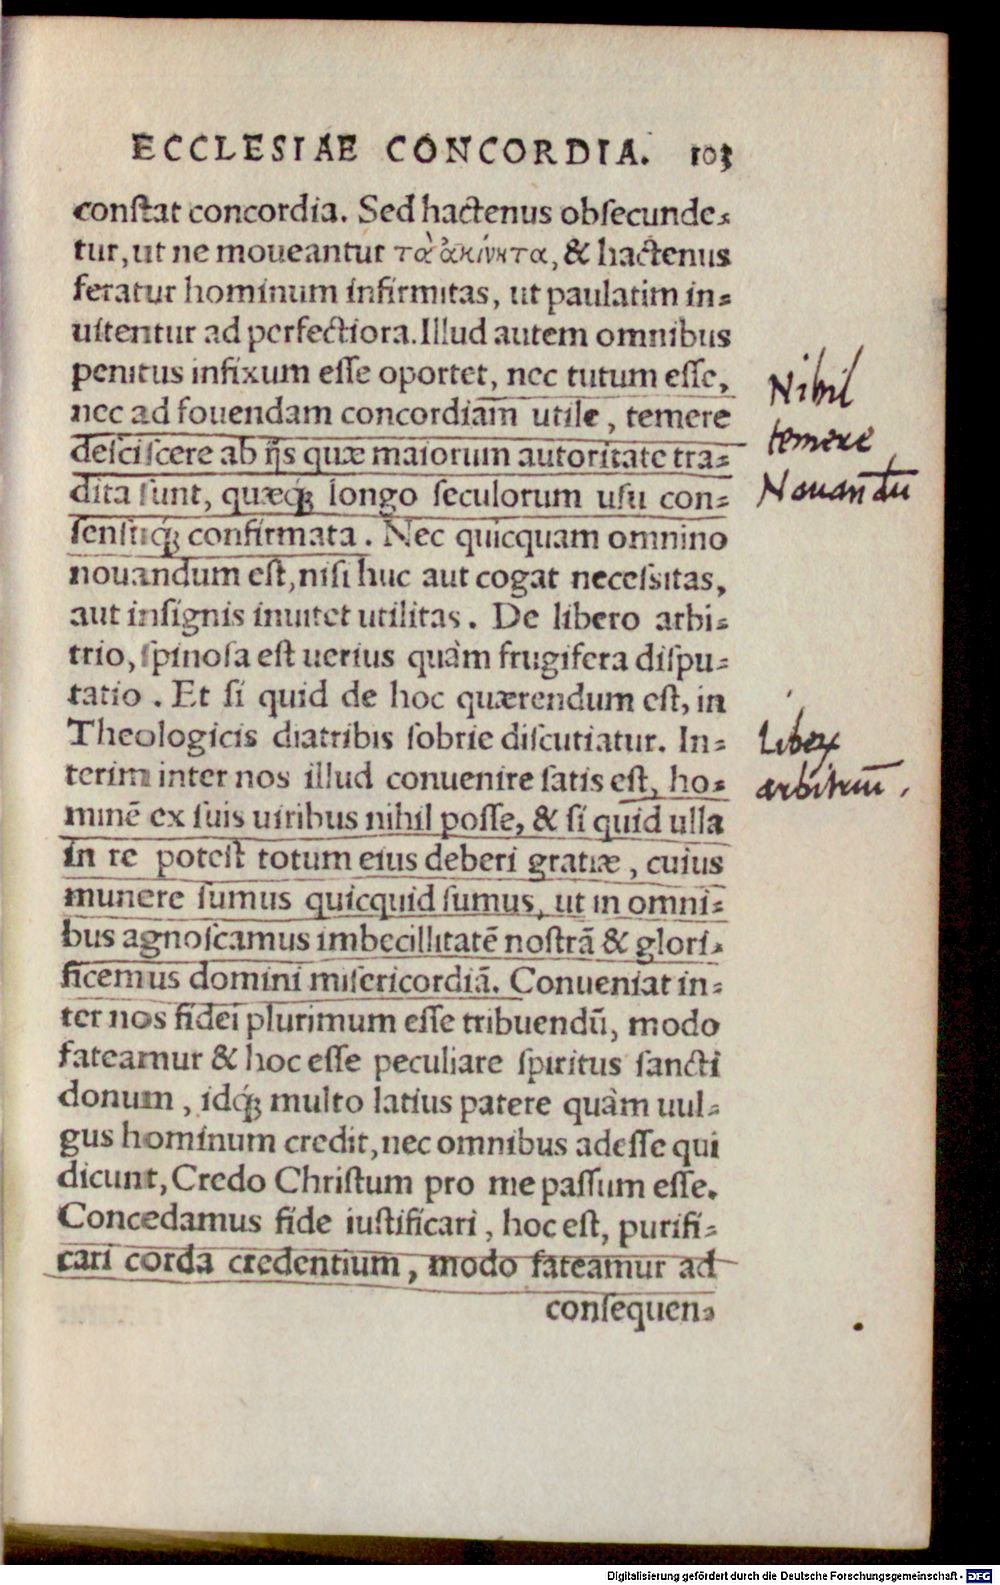 ECCLESIAE CONCORDIA. 103
conſtat concordia. Sed hactenus obſecunde⸗
tur, ut ne moueantur τὰ ἀκίνητα, & hactenus
feratur hominum infirmitas, ut paulatim in⸗
uitentur ad perfectiora. Illud autem omnibus
penitus infixum eſſe oportet, nec tutum eſſe,
nec ad fouendam concordiam utile, temere
deſciſcere ab ijs quæ maiorum autoritate tra⸗
dita ſunt, quæq́; longo ſeculorum uſu con⸗
ſenſuq́; confirmata. Nec quicquam omnino
nouandum eſt, niſi huc aut cogat neceſsitas,
aut inſignis inuitet utilitas. De libero arbi⸗
trio, ſpinoſa eſt uerius quàm frugifera diſpu⸗
tatio. Et ſi quid de hoc quærendum eſt, in
Theologicis diatribis ſobrie diſcutiatur. In⸗
terim inter nos illud conuenire ſatis eſt, ho⸗
minē ex ſuis uiribus nihil poſſe, & ſi quid ulla
in re poteſt totum eius deberi gratiæ, cuius
munere ſumus quicquid ſumus, ut in omni⸗
bus agnoſcamus imbecillitatē noſtrā & glori⸗
ficemus domini miſericordiā. Conueniat in⸗
ter nos fidei plurimum eſſe tribuendū, modo
fateamur & hoc eſſe peculiare ſpiritus ſancti
donum, idq́; multo latius patere quàm uul⸗
gus hominum credit, nec omnibus adeſſe qui
dicunt, Credo Chriſtum pro me paſſum eſſe.
Concedamus fide iuſtificari, hoc eſt, purifi⸗
cari corda credentium, modo fateamur ad
conſequen⸗
Nihil
temere
Nouandū
arbitriū.
Digitalisierung gefördert durch die Deutsche Forschungsgemeinschaft - DFG